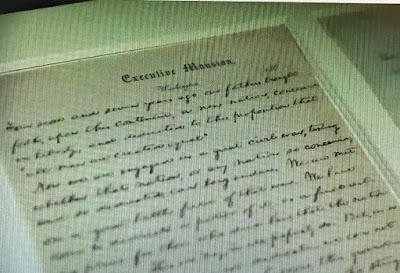 Executive Mansion,
Washington,
Four score and seven years ago our fathers brought
forth, upon this continent, a new nation, conceived
in liberty, and dedicated to the proposition that
"all men are created equal"
Now we are engaged in a great civil war, testing
whether that nation, or any nation so conceived,
and so dedicated, can long endure. We are met
on a great battle field of that war. We have
come to dedicate a portion of it, as a final rest
for those who died here, that the nation